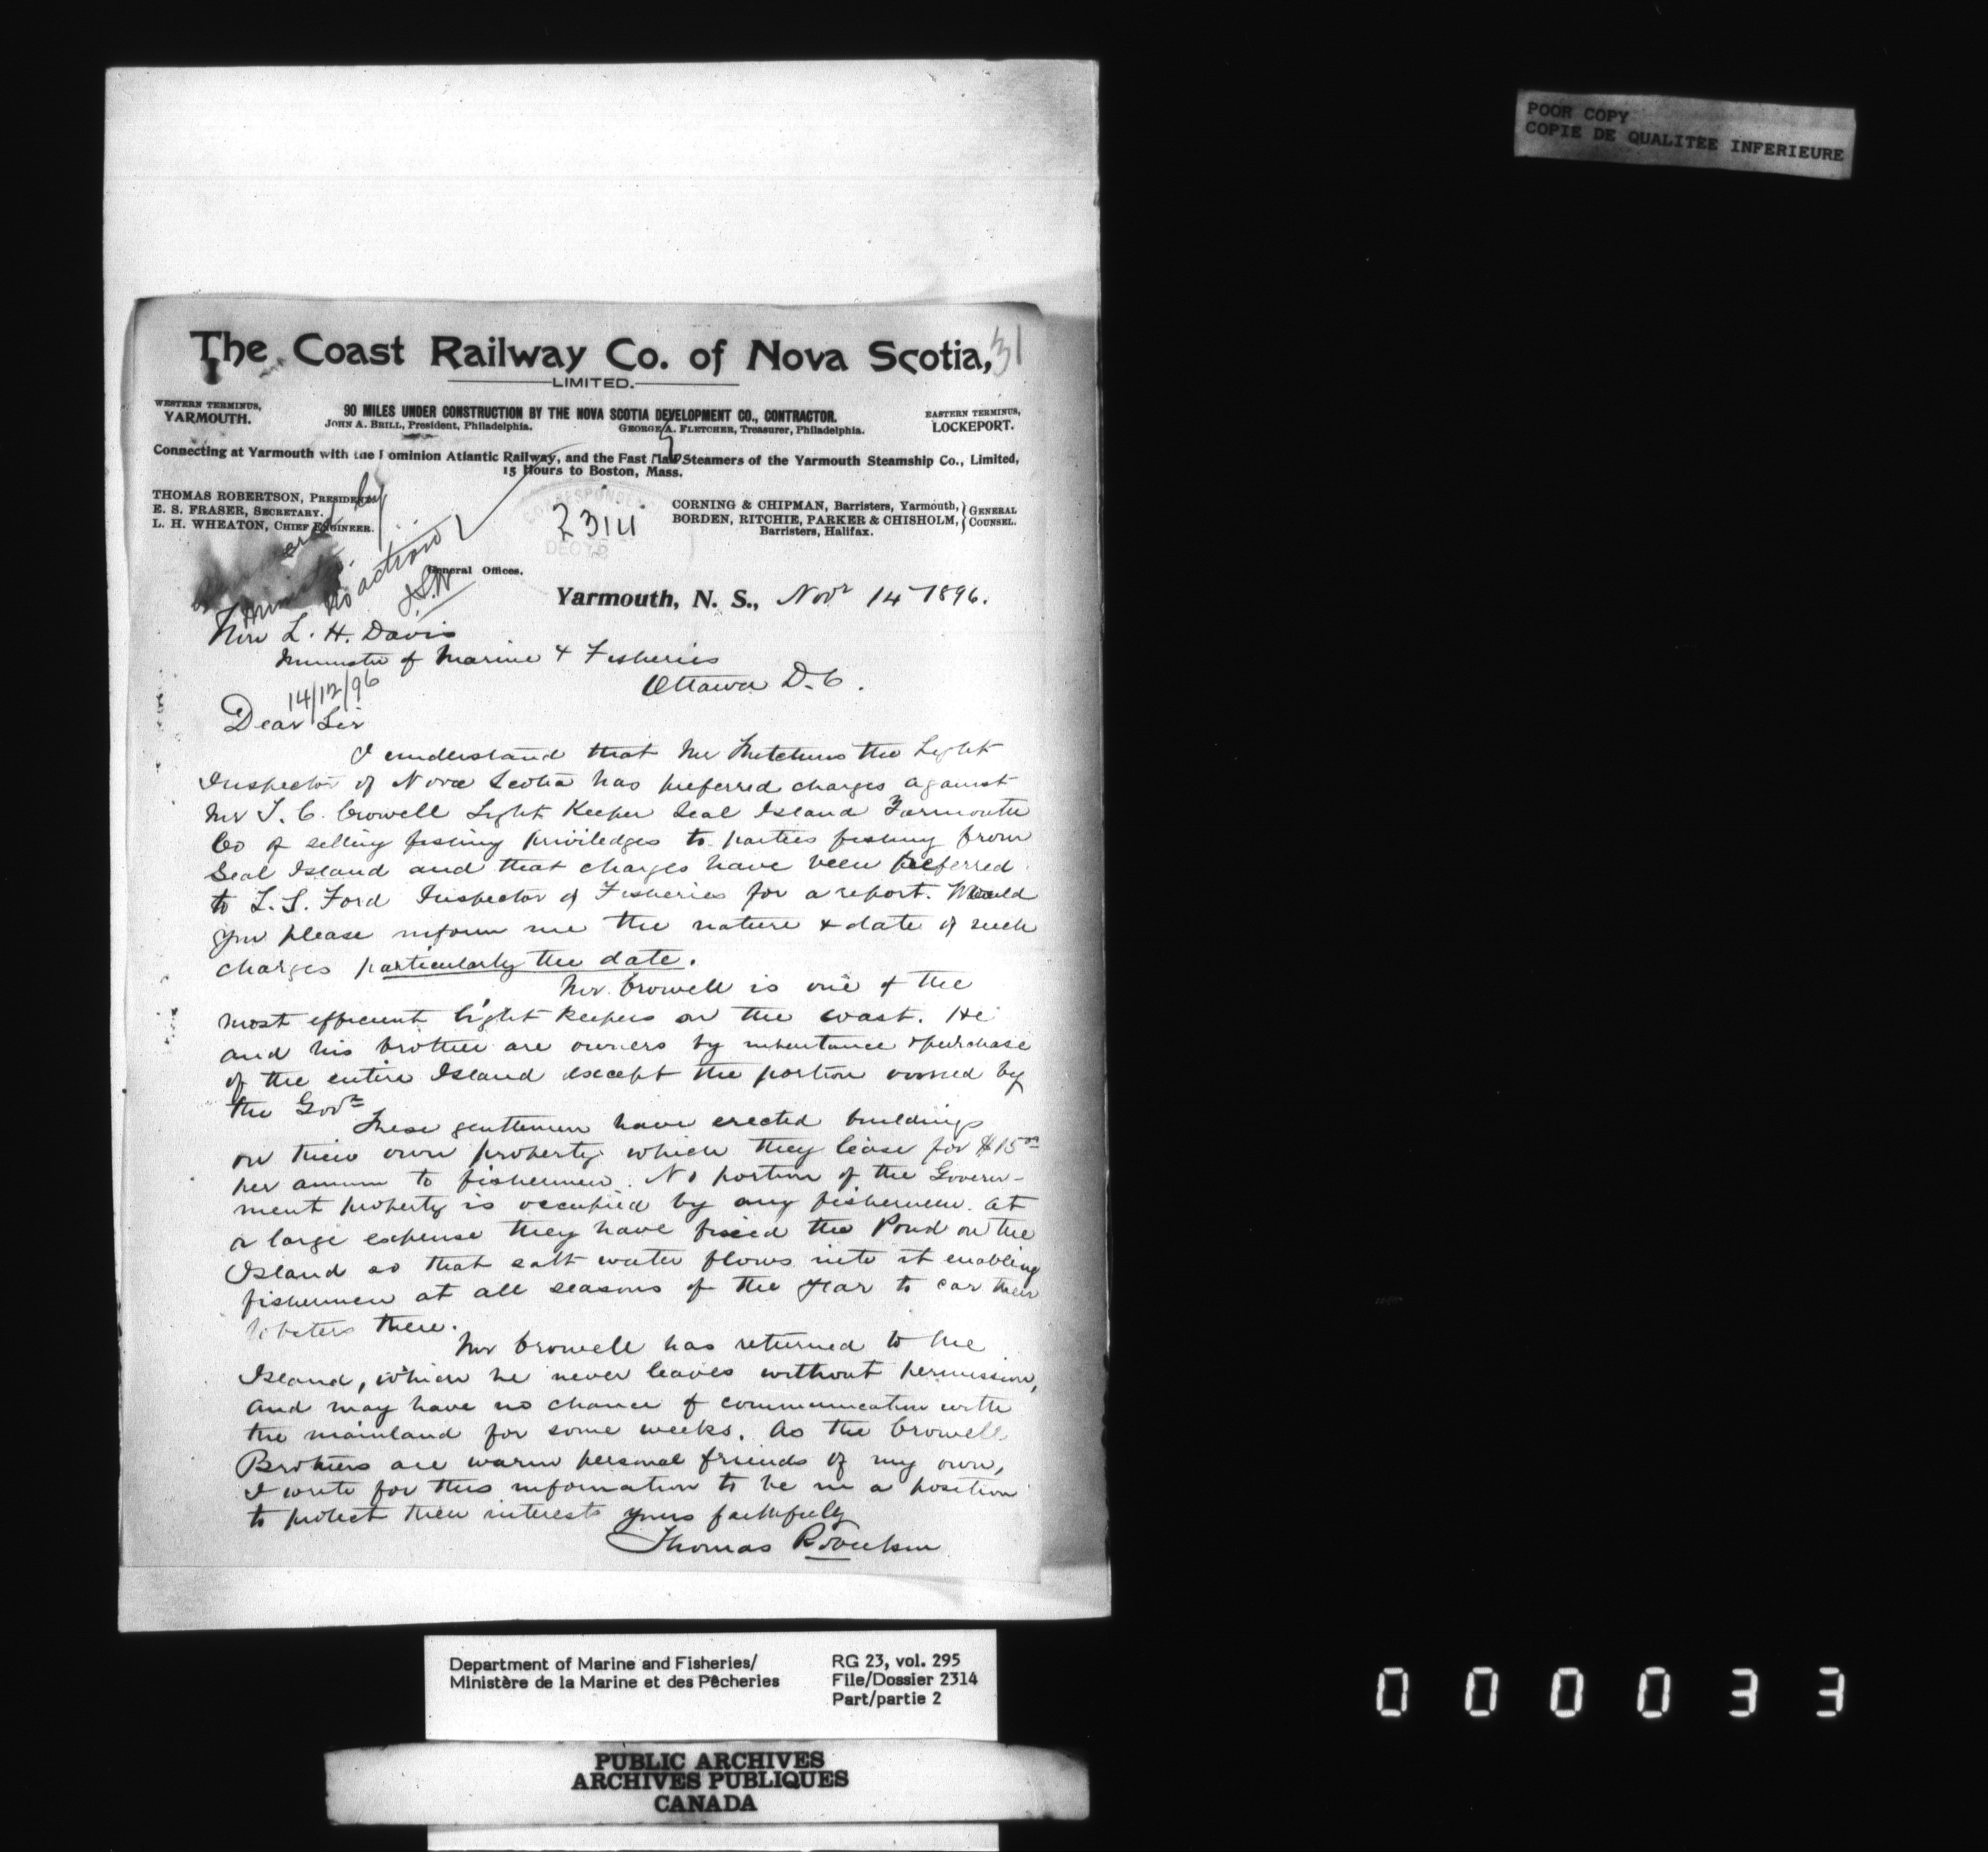 POOR COPY
COPIE DE QUALITÉE INFERIEURE
31
The Coast Railway Co. of Nova Scotia,
LIMITED.
WESTERN TERMINUS,
YARMOUTH.
90 MILES UNDER CONSTRUCTION BY THE NOVA SCOTIA DEVELOPMENT CO., CONTRACTOR.
JOHN A. BRILL, President, Philadelphia. GEORGE A. FLETCHER, Treasurer, Philadelphia.
EASTERN TERMINUS,
LOCKEPORT.
Connecting at Yarmouth with the Dominion Atlantic Railway, and the Fast Mail Steamers of the Yarmouth Steamship Co., Limited,
15 Hours to Boston, Mass.
THOMAS ROBERTSON, PRESIDENT.
E. S. FRASER, SECRETARY.
L. H. WHEATON, CHIEF ENGINEER.
CORNING & CHIPMAN, Barristers, Yarmouth,
BORDEN, RITCHIE, PARKER & CHISHOLM,
Barristers, Halifax.
GENERAL
COUNSEL.
2314
by
No action
General Offices.
Yarmouth, N. S., Novr 14 1896.
Hon L. H. Davis
Minister of Marine & Fisheries
Ottawa D.C.
14/12/96
Dear Sir
I understand that Mr Hutchins the Light
Inspector of Nova Scotia has preferred charges against
Mr T. C. Crowell Light Keeper Seal Island Yarmouth
Co of selling fishing priviledges to parties fishing from
Seal Island and that charges have been referred
to L. S. Ford Inspector of Fisheries for a report. Would
you please inform me the nature & date of such
charges particularly the date.
Mr. Crowell is one of the
most efficient light keepers on the coast. He
and his brother are owners by inheritance & purchase
of the entire Island except the portion owned by
the Govt
These gentlemen have erected buildings
on their own property which they lease for $15 00
per annum to fishermen. No portion of the Govern-
ment property is occupied by any fishermen. At
a large expense they have fixed the Pond on the
Island so that salt water flows into it enabling
fishermen at all seasons of the year to car their
lobsters there.
Mr Crowell has returned to the
Island, which he never leaves without permission,
and may have no chance of communication with
the mainland for some weeks. As the Crowell
Brothers are warm personal friends of my own,
I write for this information to be in a position
to protect their interests yours faithfully
Thomas Robertson
Department of Marine and Fisheries/
Ministère de la Marine et des Pêcheries
RG 23, vol. 295
File/Dossier 2314
Part/partie 2
PUBLIC ARCHIVES
ARCHIVES PUBLIQUES
CANADA
000033